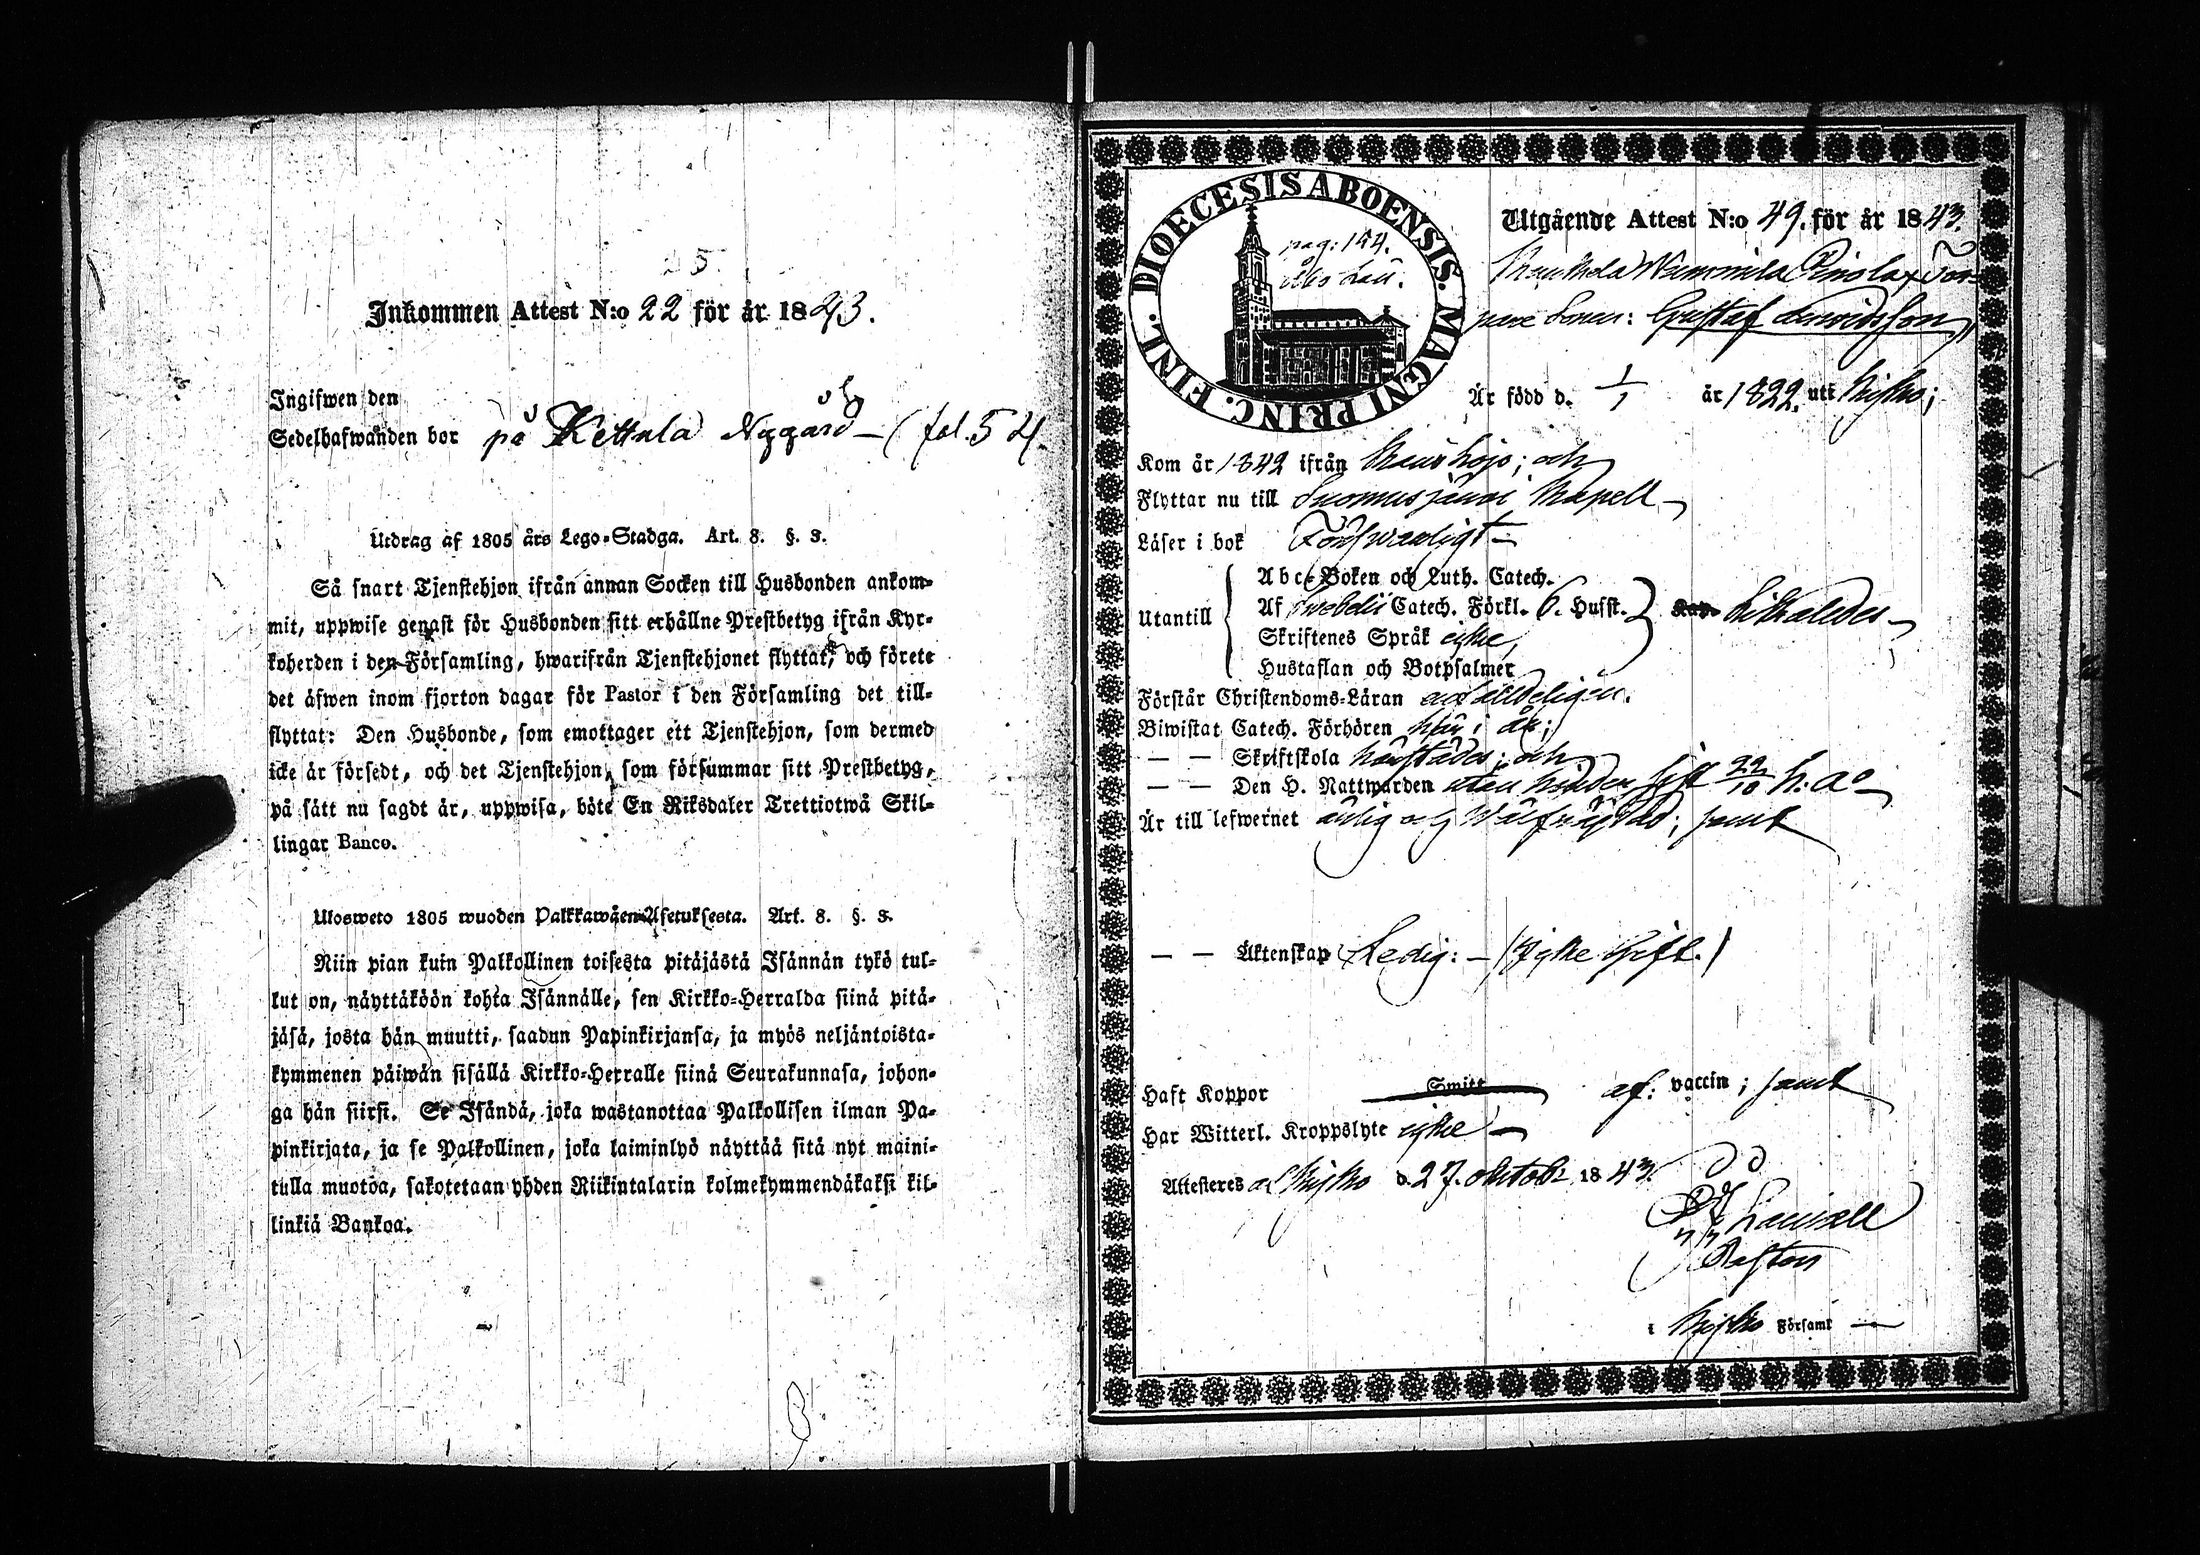 25.
Inkommen Attest N:o 22 för år 1843.
Ingifwen den
Sedelhafwanden bor på Kettula Nygård — (fol. 54.
Utdrag af 1805 års Lego-Stadga. Art. 8. §. 3.
Så snart Tjenstehjon ifrån annan Socken till Husbonden ankom-
mit, uppwise genast för Husbonden sitt erhållne Prestbetyg ifrån Kyr-
koherden i den Församling, hwarifrån Tjenstehjonet flyttat, och förete
det äfwen inom fjorton dagar för Pastor i den Församling det till-
flyttat: Den Husbonde, som emottager ett Tjenstehjon, som dermed
icke är försedt, och det Tjenstehjon, som försummar sitt Prestbetyg,
på sätt nu sagdt är, uppwisa, böte En Riksdaler Trettiotwå Skil-
lingar Banco.
Ulosweto 1805 wuoden Palkkawäen-Asetuksesta. Art. 8. §. 3.
Niin pian kuin Palkollinen toisesta pitäjästä Isännän tykö tul-
lut on, näyttäköön kohta Isännälle, sen Kirkko-Herralda siinä pitä-
jäsä, josta hän muutti, saadun Papinkirjansa, ja myös neljäntoista-
kymmenen päiwän sisällä Kirkko-Herralle siinä Seurakunnasa, johon-
ga hän siirsi. Se Isändä, joka wastanottaa Palkollisen ilman Pa-
pinkirjata, ja se Palkollinen, joka laiminlyö näyttää sitä nyt maini-
tulla muotoa, sakotetaan yhden Riikintalarin kolmekymmendäkaksi kil-
linkiä Bankoa.
DIOECESIS ABOENSIS. MAGNI PRINC. FINL.
pag: 194.
Utgående Attest N:o 49. för år 1843.
Gustaf Davidsson
Är född d. 1/1 år 1822. uti Kisko;
Kom år 1842 ifrån Karislojo; och
Flyttar nu till Suomusjärvi Kapell —
Läser i bok Försvarligt —
Utantill
Abc-Boken och Luth. Catech.
Af Swebelii Catech. Förkl. 6. Husst.
Skriftenes Språk icke
Hustaflan och Botpsalmer
Likaledes —
Förstår Christendoms-Läran enfaldeligen.
Biwistat Catech. Förhören här i år;
— — Skriftskola härstädes; och
— — Den H. Nattwarden utan hinder sist 22/10 h. a°
Är till lefwernet ärlig och Wälfrägdad; samt
— — Äktenskap Ledig: — (Icke Gift.)
Haft Koppor Smitt af: vaccin; samt
Har Witterl. Kroppslyte icke —
Attesteras af Kisko d. 27. oktobr 1843.
Pastor
i Kisko Församl —